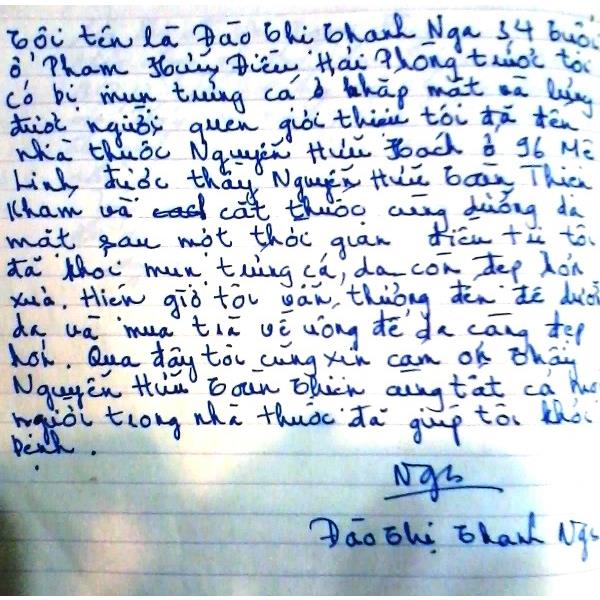 Tôi tên là Đào Thị Thanh Nga 34 tuổi
ở Phạm Hữu Điều Hải Phòng trước tôi
có bị mụn trứng cá ở khắp mặt và lưng
được người quen giới thiệu tôi đã đến
nhà thuốc Nguyễn Hữu Hách ở 96 Mê
Linh, được thầy Nguyễn Hữu Toàn Thiên
Khám và cắt thuốc cùng dưỡng da
mặt sau một thời gian điều trị tôi
đã khỏi mụn trứng cá, da còn đẹp hơn
xưa. Hiện giờ tôi vẫn thường đến để dưỡng
da và mua trà về uống để da càng đẹp
hơn. Qua đây tôi cũng xin cảm ơn thầy
Nguyễn Hữu Toàn Thiên cùng tất cả mọi
người trong nhà thuốc đã giúp tôi khỏi
bệnh.
Nga
Đào Thị Thanh Nga